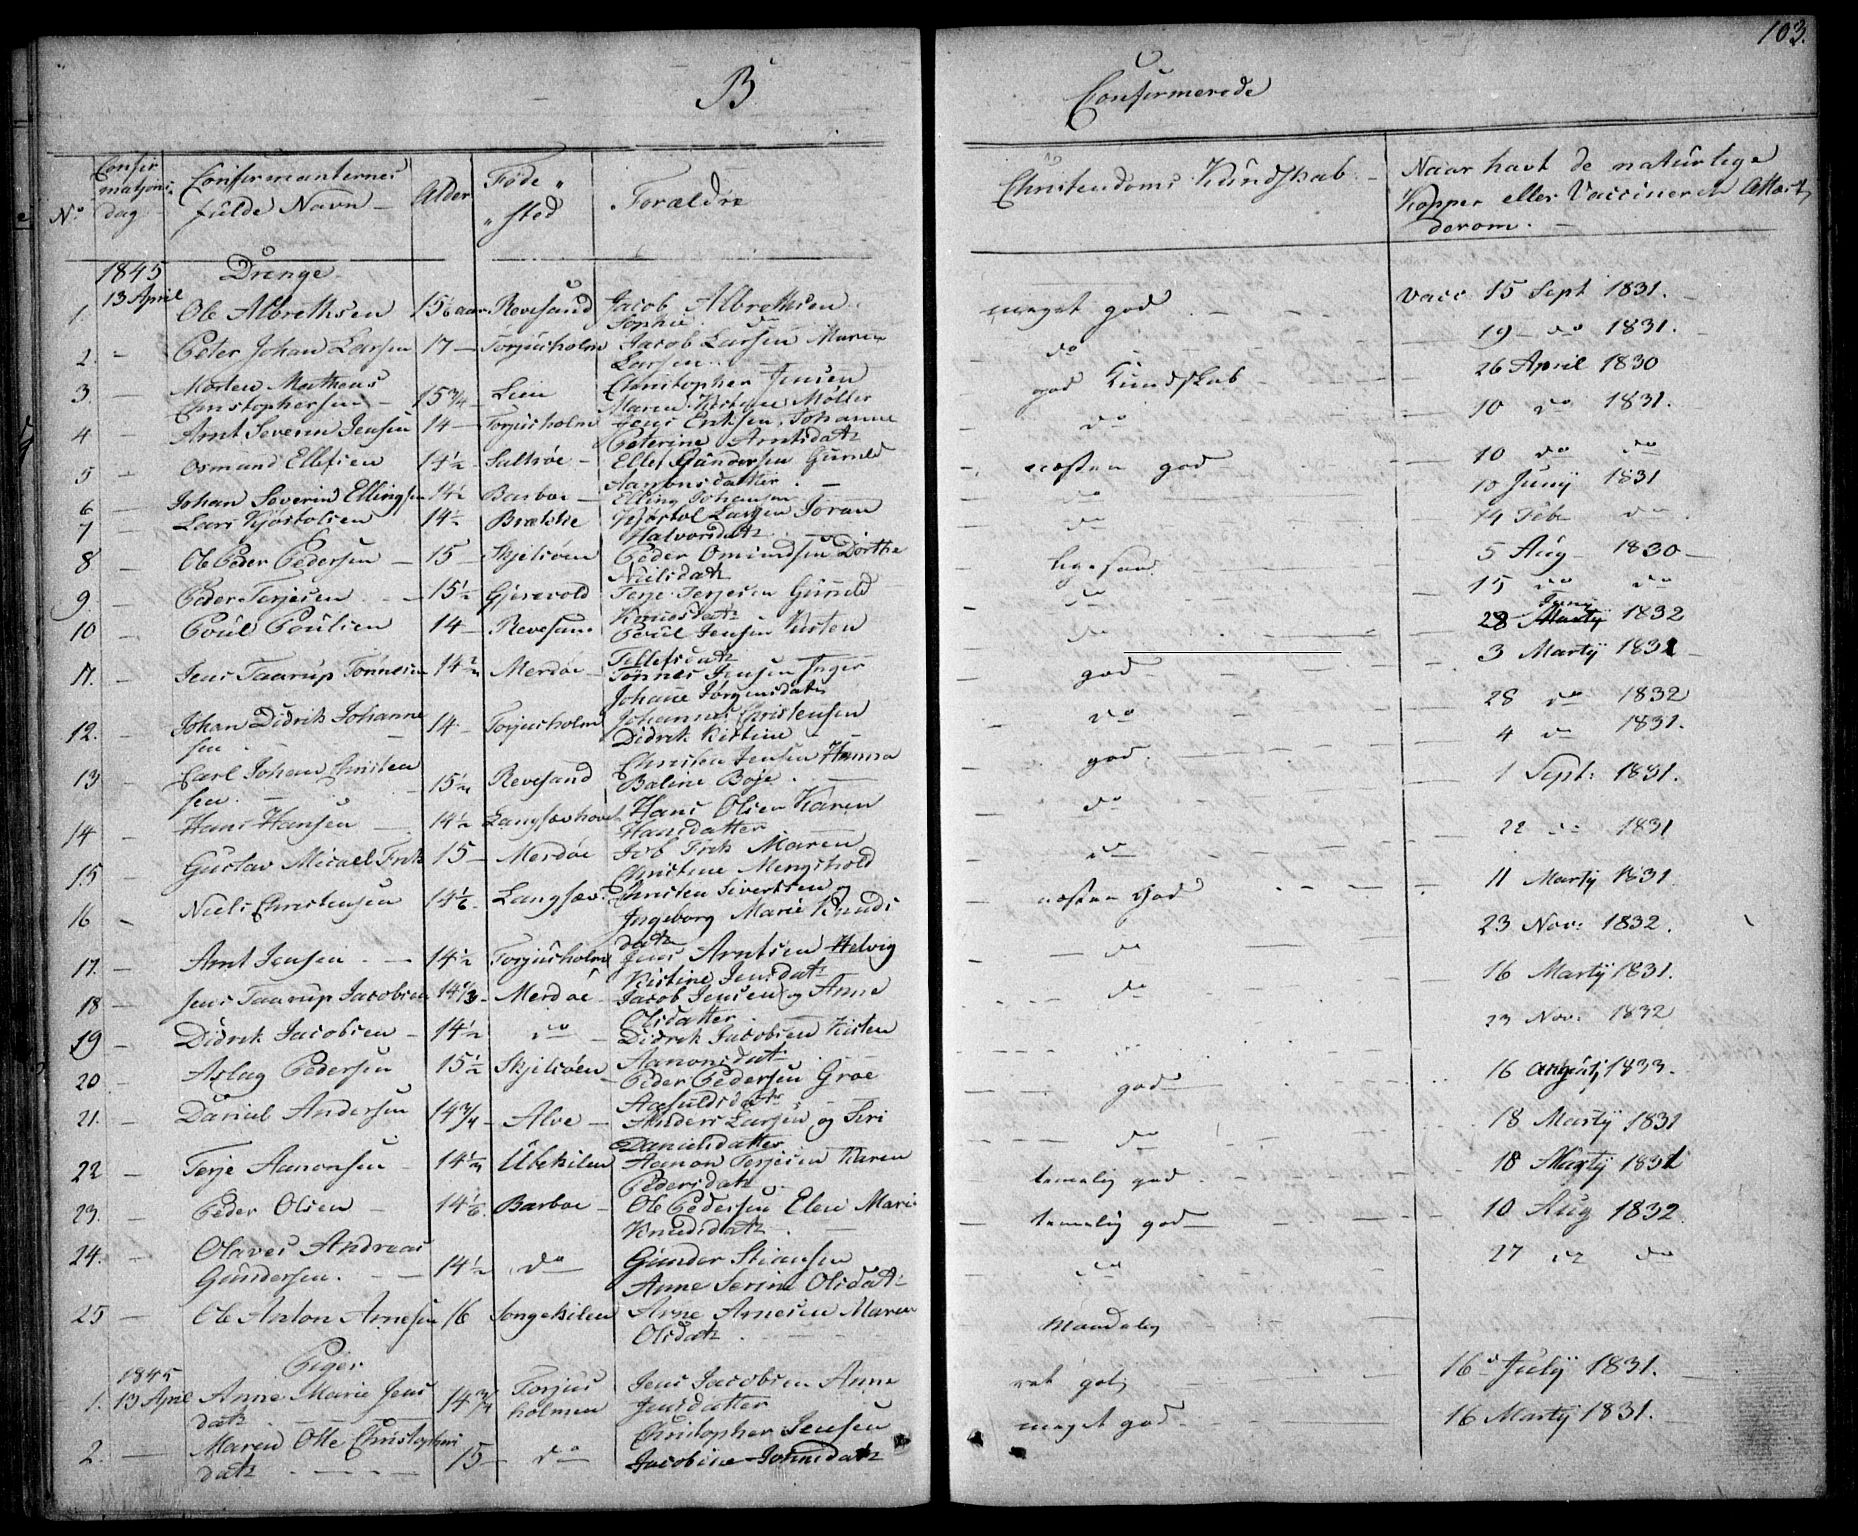 103.
B
Confirmerede
No
Confirmations dag
Confirmanternes fulde Navn
Alder
Føde sted
Forældre
Christendoms Kundskab
Naar havt de naturlige Kopper eller Vaccineren Attest derom.
1845 Drenge
1. 13 April Ole Albrethsen 15 1/6 aar Revesand Jacob Albrethsen Sophie do meget god Vacc 15 Sept 1831.
2. Peter Johan Larsen 17 Torjusholm Jacob Larsen Maren Larsen do 19 do 1831.
3 Morten Matheus Christophersen 15 3/4 Lien Christopher Jensen Maren Kirstine Møller god Kundskab 26 April 1830
4 Arnt Severin Jensen 14 Torjusholm Jens Eriksen Johanne Peterine Arntsdatr do 10 do 1831.
5 Osmund Ellefsen 14 1/2 Saltrøe Ellef Gundersen Gunild Aanonsdatter næsten god 10 do do
6 Johan Severin Ellingsen 14 1/2 Barboe Elling Johansen do 10 Juny 1831
7 Lars Kjøstolsen 14 1/2 Brække Kjøstol Larsen Joran Halvorsdatr do 14 Feb do
8 Ole Peder Pedersen 15 Skjelsøen Peder Omundsen Dorthe Nielsdatr ligesaa 5 Aug 1830
9. Peder Terjesen 15 1/2 Gjerevold Terje Terjesen Gunild Knudsdatr do 15 do do
10 Poul Poulsen 14 Revesand Poul Jensen Kirsten Tellefsdatr do 28 Marty Juny 1832
11. Jens Taarup Tønnesen 14 1/2 Merdøe Tønnes Jensen Inger Johane Jørgensdatr god 3 Marty 1831
12. Johan Didrik Johannesen 14 Torjusholm Johannes Christensen Didrik Kistine do 28 do 1832
13 Carl Johan Christensen 15 1/4 Revesand Christen Jensen Hanna Baline Boje god 4 do 1831.
14 Hans Hansen 14 1/2 Langsævhovet Hans Olsen Karen Hansdatter do 1 Sept: 1831.
15 Gustav Micael Friis 15 Merdøe Job Friis Maren Christine Mengshold do 22 do 1831
16 Niels Christensen 14 1/6 Langsæv Christen Sivertsen og Ingeborg Marie Knudsdatr næsten god 11 Marty 1831.
17. Arnt Jensen 14 1/2 Torjusholm Jens Arntsen Helvig Kistine Jensdatr do 23 Nov: 1832.
18 Jens Taarup Jacobsen 14 1/3 Merdøe Jacob Jensen og Anne Olsdatter do 16 Marty 1831.
19 Didrik Jacobsen 14 1/2 do Didrik Jacobsen Kisten Aanonsdatr 23 Nov: 1832
20 Aslag Pedersen 15 1/2 Skjelsøen Peder Pedersen Groe god 16 August 1833.
21. Daniel Andersen 14 3/4 Alve Anders Larsen og Siri Danielsdatter do 18 Marty 1831
22 Terje Aanonsen 14 1/4 Ubekilen Aanon Terjesen Karen Pedersdatr temelig god 18 Marty 1831
23. Peder Olsen 14 1/6 Barboe Ole Pedersen Elen Marie Knudsdatr temelig god 10 Aug 1832
24. Olaves Andreas Gundersen. 14 1/2 do Gunder Stiansen Anne Serine Olsdatr do 27 do do
25 Ole Anton Arnesen 16 Songekilen Arne Arnesen Maren Olsdatr Maadelig
1845 Piger
1. 13 April Anne Marie Jensdatr 14 3/4 Torjusholmen Jens Jacobsen Anne Jensdatter ret god 16 July 1831.
2. Maren Otte Christophersdatr 15 do Christopher Jensen Jacobine Johnsdatr meget god 16 Marty 1831.